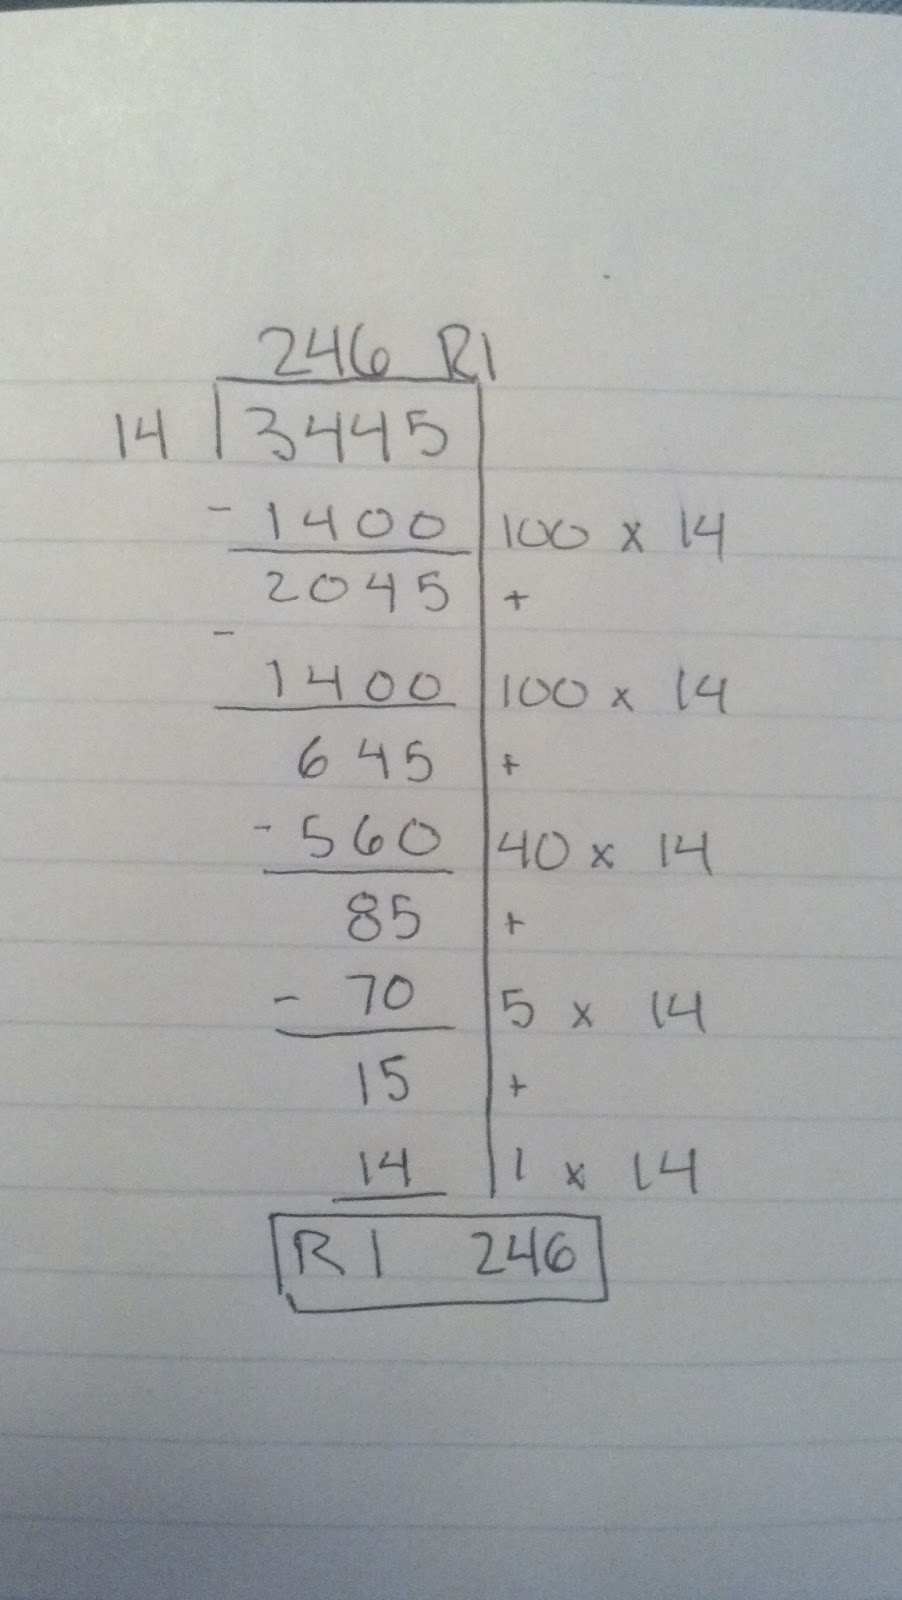 246 R1
14 3445
- 1400 100 x 14
2045 +
-
1400 100 x 14
645 +
- 560 40 x 14
85 +
- 70 5 x 14
15 +
14 1 x 14
R 1 246